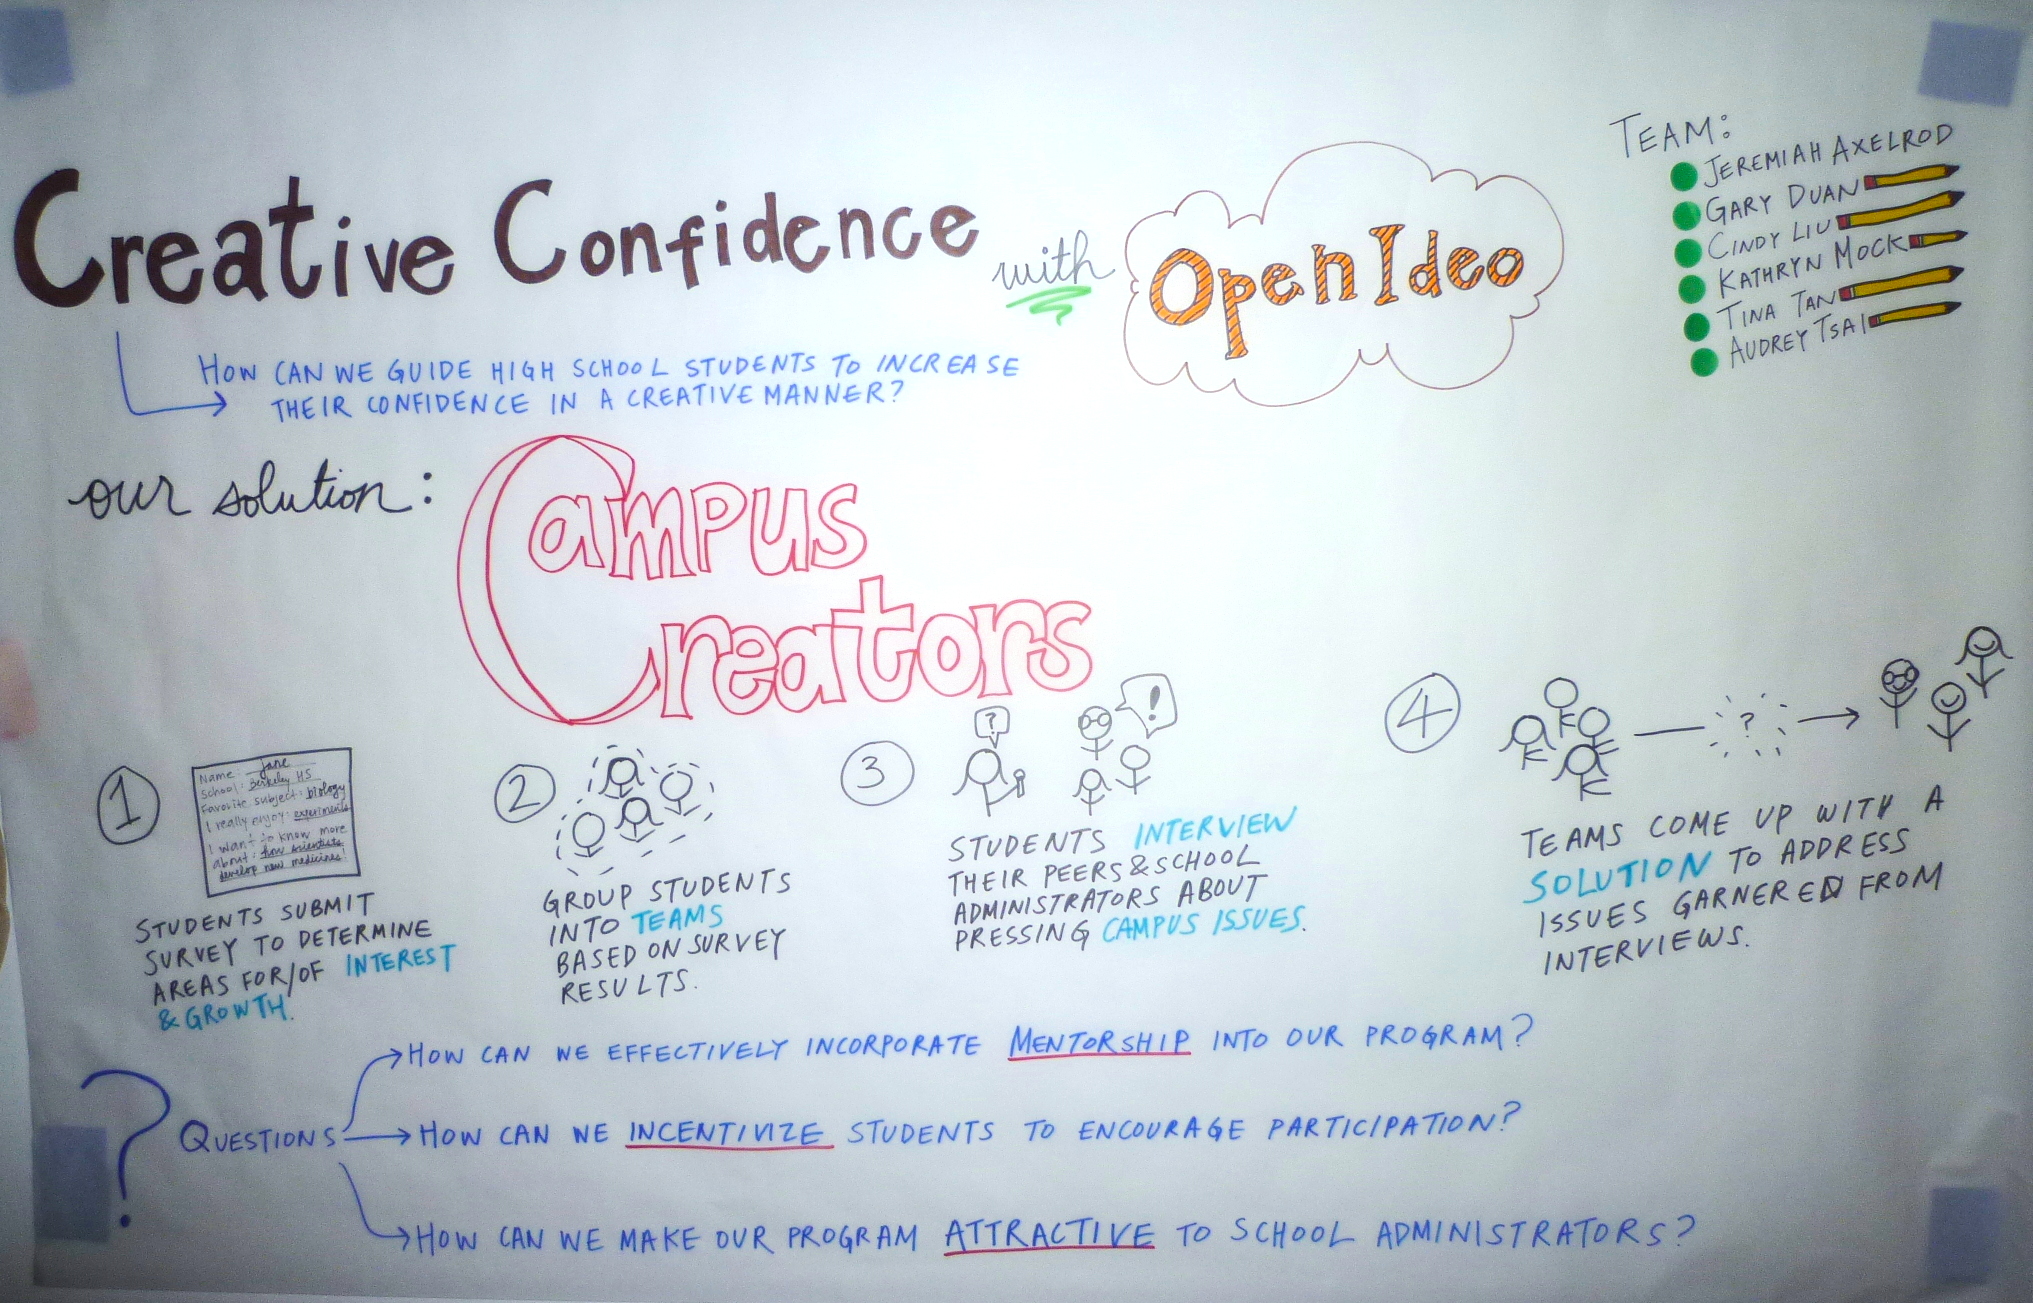 Creative Confidence with OpenIdeo
TEAM:
JEREMIAH AXELROD
GARY DUAN
CINDY LIU
KATHRYN MOCK
TINA TAN
AUDREY TSAI
HOW CAN WE GUIDE HIGH SCHOOL STUDENTS TO INCREASE
THEIR CONFIDENCE IN A CREATIVE MANNER?
our solution:
Campus
Creators
1
Name: Jane
School: Berkeley HS
Favorite subject: biology
I really enjoy: experiments
I want to know more
about: how scientists
develop new medicines!
STUDENTS SUBMIT
SURVEY TO DETERMINE
AREAS FOR/OF INTEREST
& GROWTH.
2
GROUP STUDENTS
INTO TEAMS
BASED ON SURVEY
RESULTS.
3
?
!
STUDENTS INTERVIEW
THEIR PEERS & SCHOOL
ADMINISTRATORS ABOUT
PRESSING CAMPUS ISSUES.
4
?
TEAMS COME UP WITH A
SOLUTION TO ADDRESS
ISSUES GARNERED FROM
INTERVIEWS.
? QUESTIONS
HOW CAN WE EFFECTIVELY INCORPORATE MENTORSHIP INTO OUR PROGRAM?
HOW CAN WE INCENTIVIZE STUDENTS TO ENCOURAGE PARTICIPATION?
HOW CAN WE MAKE OUR PROGRAM ATTRACTIVE TO SCHOOL ADMINISTRATORS?